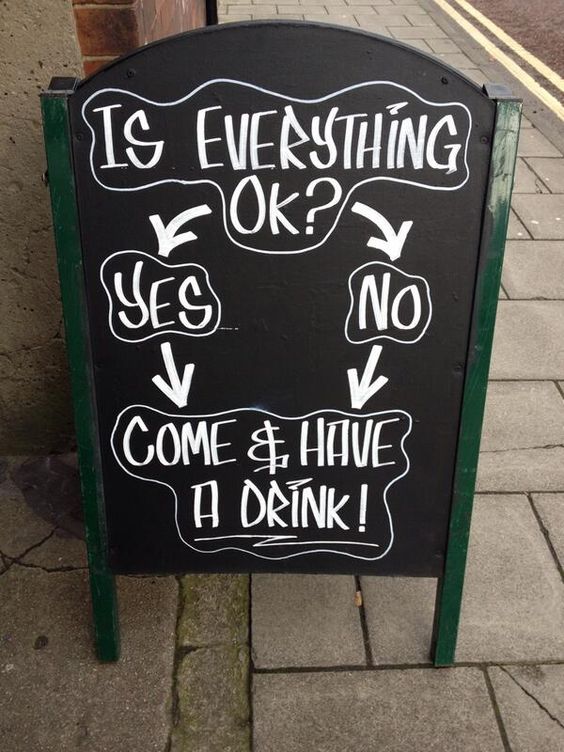 IS EVERYTHING
OK?
YES
NO
COME & HAVE
A DRINK!